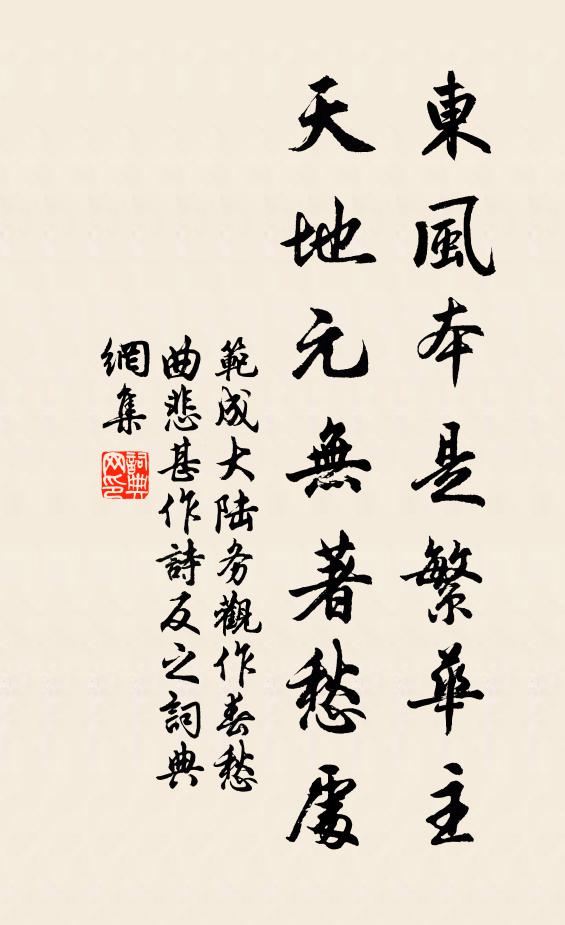 東風本是繁華主
天地元無著愁處
範成大陆务觀作春愁
曲悲甚作詩反之詞典
網集
詞典网印